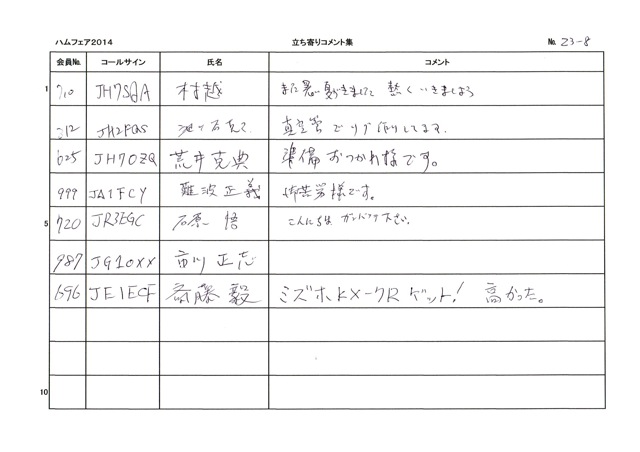 ハムフェア2014 立ち寄りコメント集 No. 23-8
会員No. コールサイン 氏名 コメント
1 710 JH7SQA 村越 また暑い夏がきました 熱くいきましょう
312 JH2FQS 真空管でリグ作りしてます。
625 JH7OZQ 荒井克典 準備おつかれ様です。
999 JA1FCY 難波正義 御苦労様です。
5 720 JR3EGC 石原 悟 こんにちは ガンバッテ下さい。
987 JG1OXX 市川 正志
696 JE1ECF 斎藤 毅 ミズホKX-QRゲット! 高かった。
10